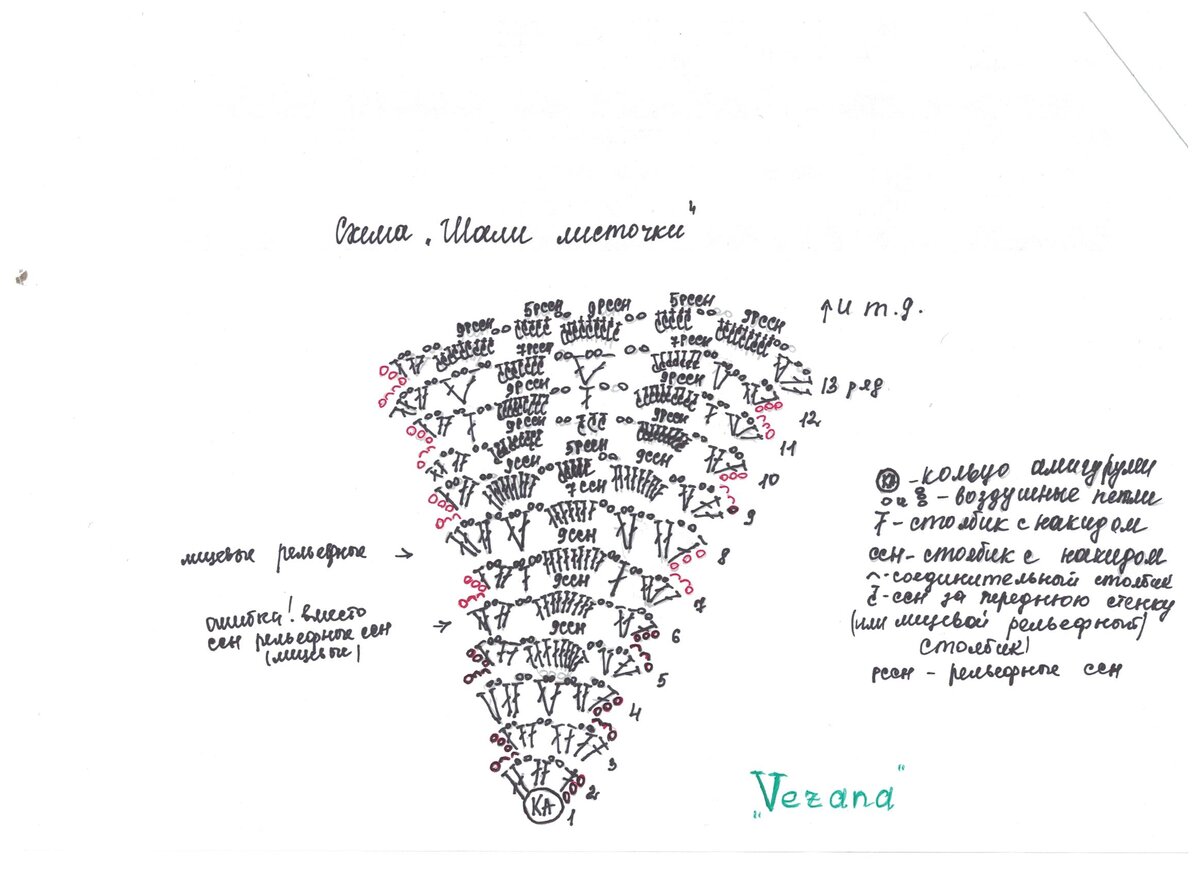 Схема „Шали листочки"
5рссн 9рссн 5рссн
9рссн 9рссн
↑ и т.д.
7рссн 7рссн
13 ряд
9рссн 9рссн
12
9рссн 9рссн
11
5рссн
9ссн 9ссн
10
7ссн
9
9ссн
8
лицевые рельефные →
9ссн
7
ошибка! вместо
ссн рельефные ссн →
(лицевые)
9ссн
6
5
4
3
2
КА
1
КА - кольцо амигуруми
о и 8 - воздушные петли
- столбик с накидом
ссн - столбик с накидом
⌢ - соединительный столбик
- ссн за переднюю стенку
(или лицевой рельефный)
столбик)
рссн - рельефные ссн
„Vezana"